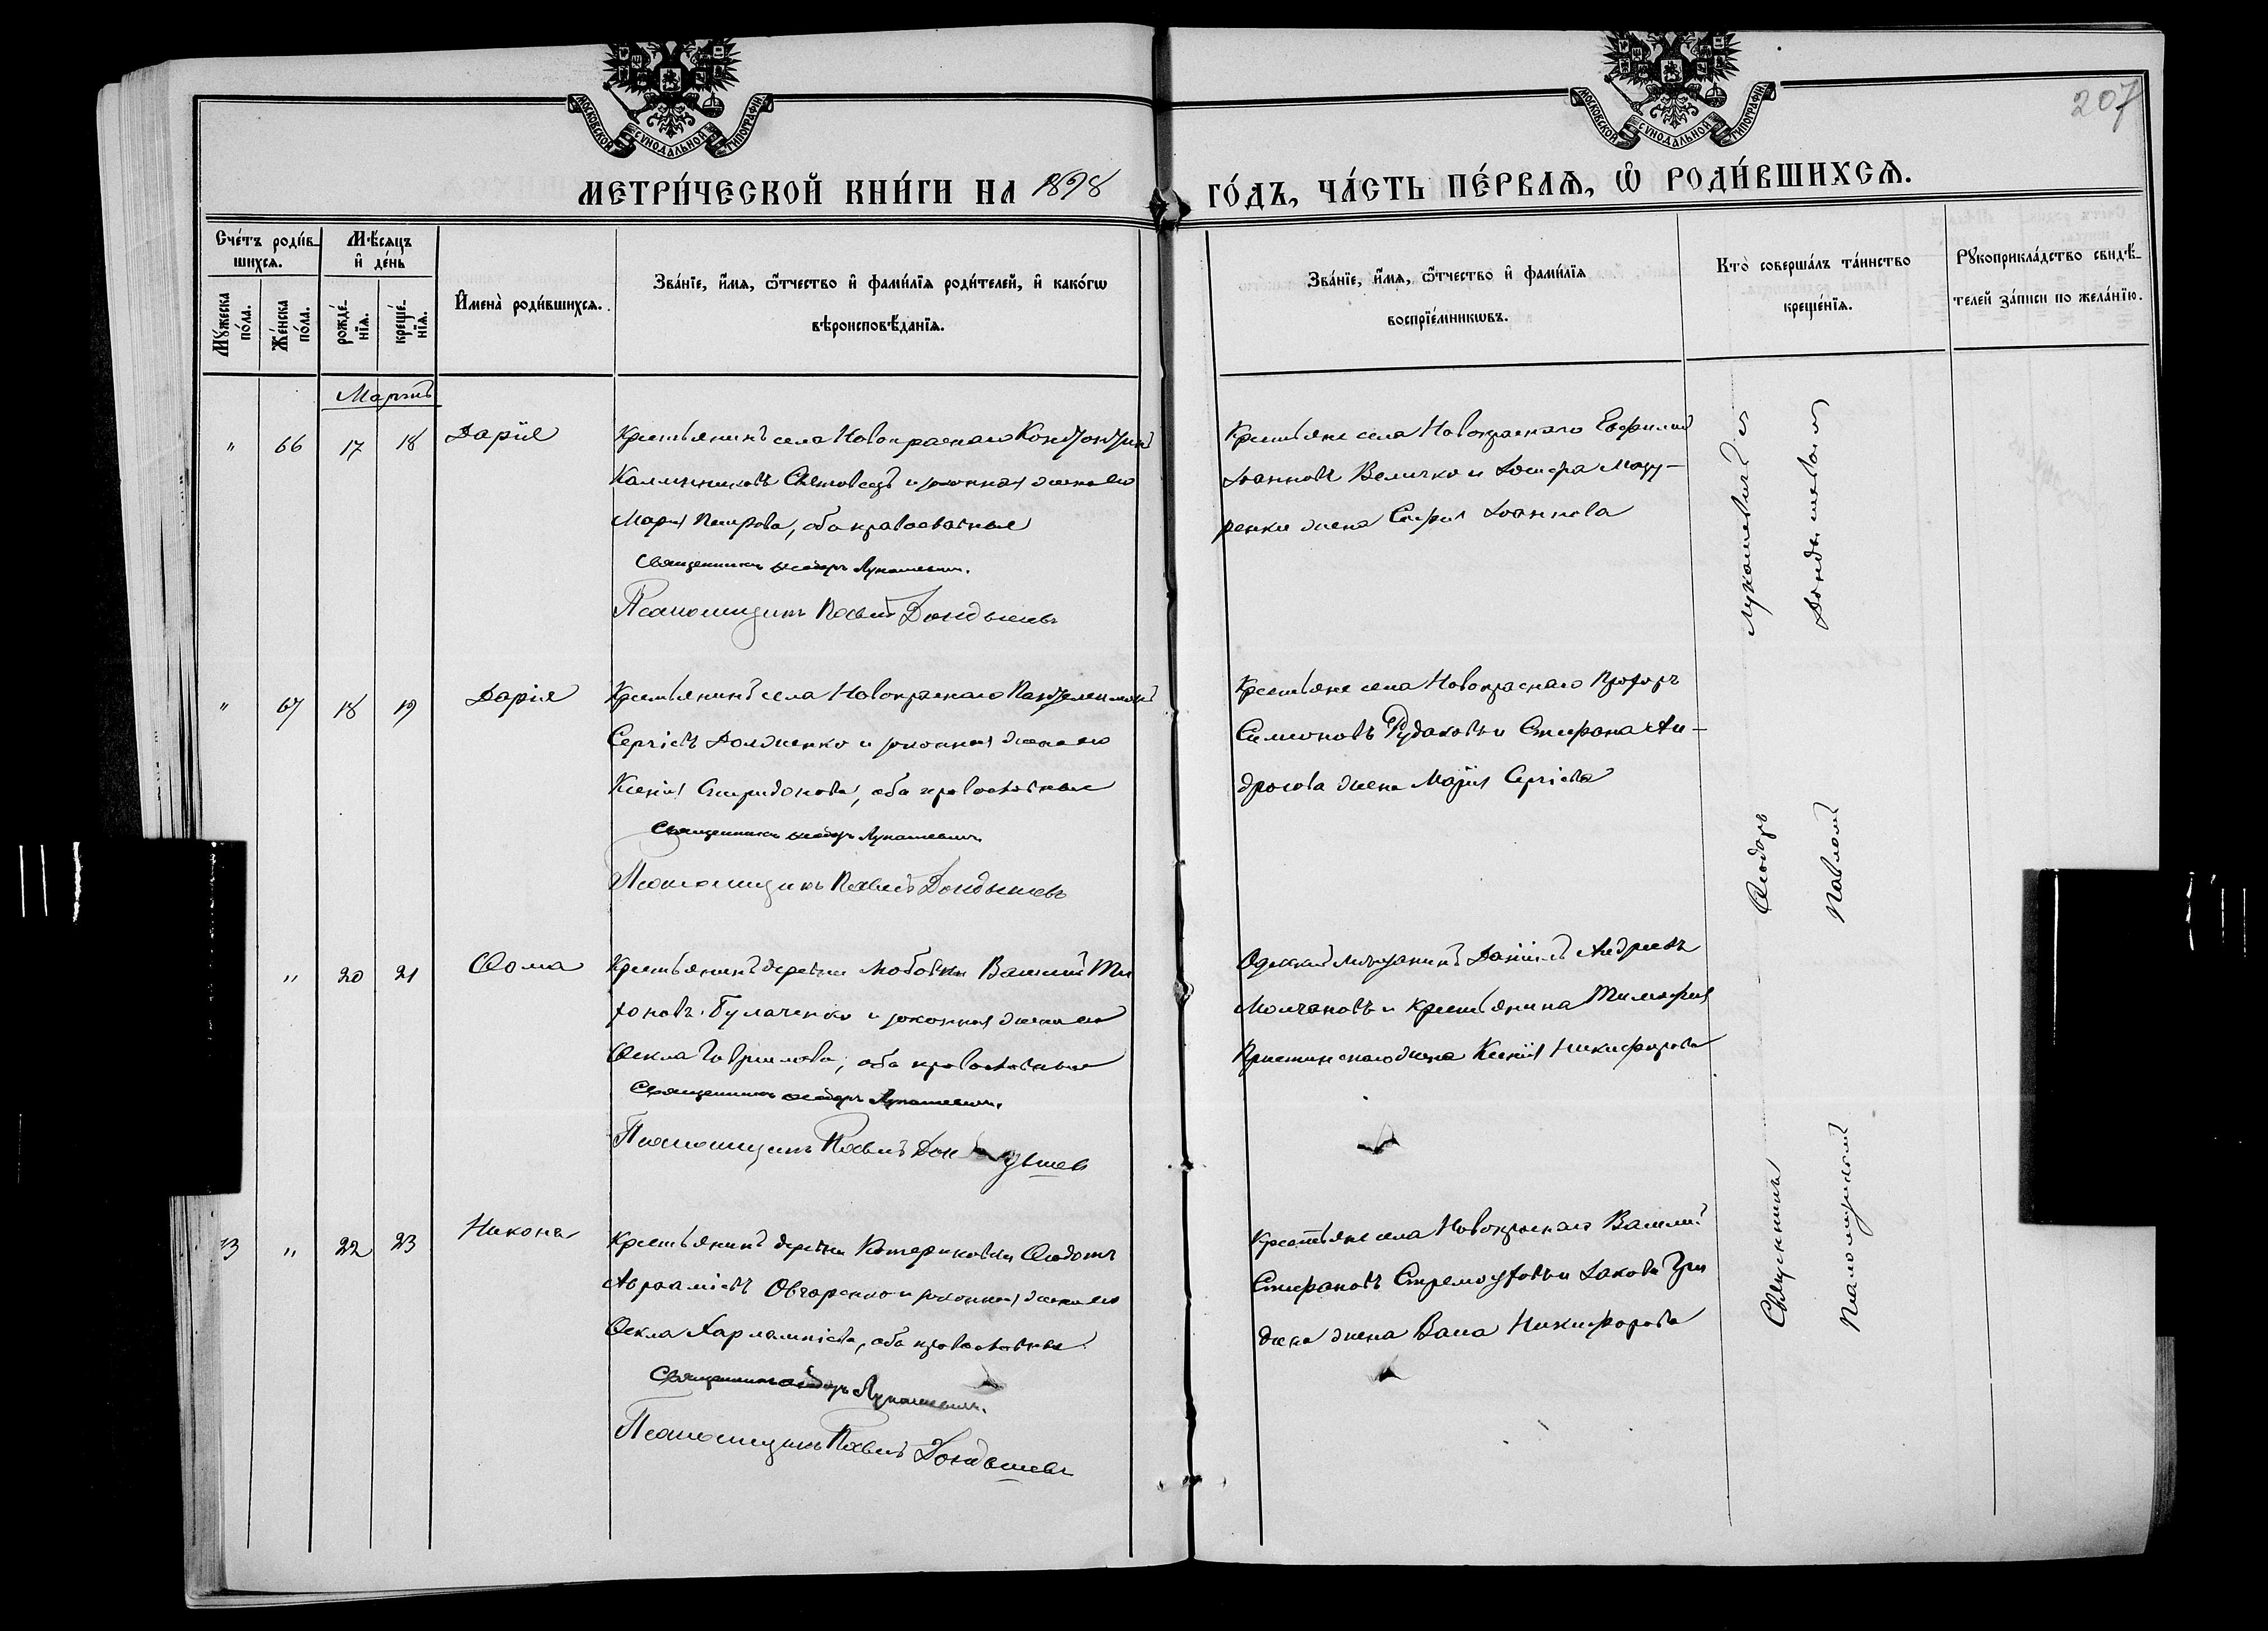 МОСКОВСКОЙ СѴНОДАЛЬНОЙ ТИПОГРАФІИ
МОСКОВСКОЙ СѴНОДАЛЬНОЙ ТИПОГРАФІИ
207
МЕТРИ́ЧЕСКОЙ КНИ́ГИ НА 1898 ГО́ДЪ, ЧА́СТЬ ПЕ́РВАѦ, Ѡ҆ РОДИ́ВШИХСѦ.
Сче́тъ роди́в-
шихсѧ.
Мꙋ́жеска
по́ла.
Же́нска
по́ла.
Мѣ́сѧцъ
и҆ де́нь
рожде́-
нїѧ.
креще́-
нїѧ.
И҆мена̀ роди́вшихсѧ.
Зва́нїе, и҆́мѧ, ѻ҆́тчество и҆ фами́лїѧ роди́телей, и҆ како́гѡ
вѣроисповѣ́данїѧ.
Зва́нїе, и҆́мѧ, ѻ҆́тчество и҆ фами́лїѧ
воспрїе́мникѡвъ.
Кто̀ соверша́лъ та́инство
креще́нїѧ.
Рꙋкоприкла́дство свидѣ́-
телей за́писи по жела́нїю.
Мартъ
" 66 17 18 Дарія
Крестьянинъ села Новокраснаго
Калинниковъ и законная жена его
Марія Петрова, оба православные
Священникъ Ѳеодоръ Лукашевичъ.
Псаломщикъ Павелъ Дондышевъ
Крестьяне села Новокраснаго Евфимій
Іоанновъ Величко и Іосифа Мазу-
ренки жена Софія Іоаннова
" 67 18 19 Дарія
Крестьянинъ села Новокраснаго Пантелеимонъ
Сергіевъ Долженко и законная жена его
Ксенія Спиридонова, оба православные
Священникъ Ѳеодоръ Лукашевичъ
Псаломщикъ Павелъ Дондышевъ
Крестьяне села Новокраснаго Прохоръ
Симеоновъ Рудаковъ и Стефана Ан-
дросова жена Марія Сергіева
" 20 21 Ѳома
Крестьянинъ деревни Любовки Василій Ти
хоновъ Булаченко и законная жена его
Ѳекла Гаврилова, оба православные
Священникъ Ѳеодоръ Лукашевичъ.
Псаломщикъ Павелъ Дондышевъ
Одесскій мѣщанинъ Даніилъ Андреевъ
Молчановъ и крестьянина Тимофея
жена Ксенія Никифорова
" 22 23 Никонъ
Крестьянинъ деревни Катериновки Ѳедотъ
Авраамiевъ Овчаренко и законная жена его
Ѳекла Харлампіева, оба православные
Священникъ Ѳеодоръ Лукашевичъ.
Псаломщикъ Павелъ Дондышевъ
Крестьяне села Новокраснаго Василій
Стефановъ и Іакова
жена Васса Никифорова
Священникъ Ѳеодоръ Лукашевичъ и
Псаломщикъ Павелъ Дондышевъ